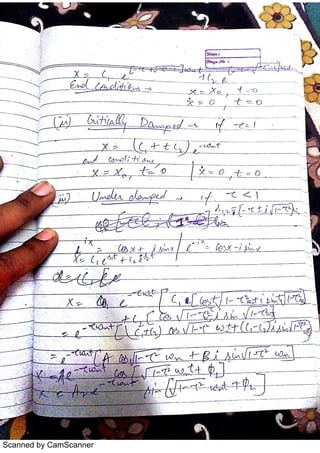 Date:
Page No.:
x = C₁ e^[-τ+√τ²-1]ωnt + C₂ e
End Conditions → x = x₀, t=0
ẋ = 0, t=0
(ii) Critically Damped → if τ=1
x = (C₁ + t C₂) e^-ωnt
end conditions,
x = x₀, t=0 | ẋ=0, t=0.
(iii) Under damped → if τ<1
e^ix = cosx + i sinx | e^-ix = cosx - i sinx
x = C₁e^s₁t + C₂e^s₂t
x = e^-τωnt [ C₁ [ cos √1-τ² + i sin √1-τ² ]
+ C₂ [ cos √1-τ² - i sin √1-τ²
= e^-τωnt [ (C₁+C₂) cos √1-τ² ωnt + (C₁-C₂) i sin √1-τ²
= e^-τωnt [ A cos √1-τ² ωn + B i sin √1-τ² ωn ]
x = A e^-τωnt cos [ √1-τ² ωnt + φ₁ ]
x = A₂ e^-τωnt sin [ √1-τ² ωnt + φ₂ ]
Scanned by CamScanner